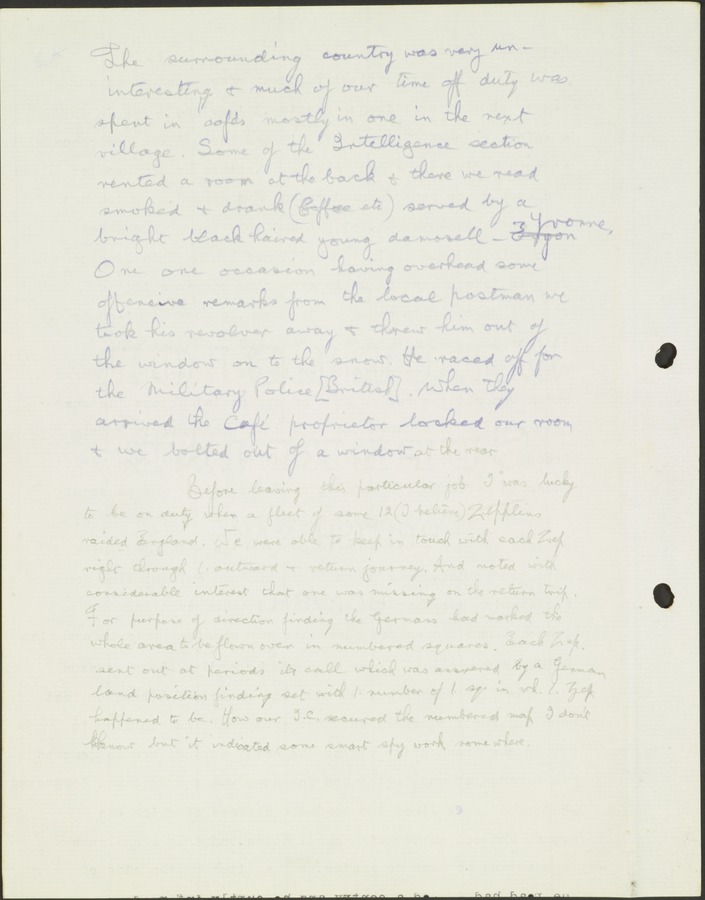 The surrounding country was very un-
interesting & much of our time off duty was
spent in cafés mostly in one in the next
village. Some of the Intelligence section
rented a room at the back & there we read
smoked & drank (Coffee etc) served by a
bright black haired young damosell - Yvonne,
One one occasion having overhead some
offensive remarks from the local postman we
took his revolver away & threw him out of
the window on to the snow. He raced off for
the Military Police [British]. When they
arrived the Café proprietor locked our room
& we bolted out of a window at the rear
Before leaving this particular job I was lucky
to be on duty when a fleet of some 12 (I believe) Zepplins
raided England. We were able to keep in touch with each Zep
right through /. outward & return journey. And noted with
considerable interest that one was missing on the return trip.
For purpose of direction finding the Germans had marked the
whole area to be flown over in numbered squares. Each Zep.
sent out at periods its call which was answered by a German
land position finding set with /. number of /. sq. in wh. /. Zep
happened to be. How our I.C. secured the numbered map I don't
know but it indicated some smart spy work somewhere.